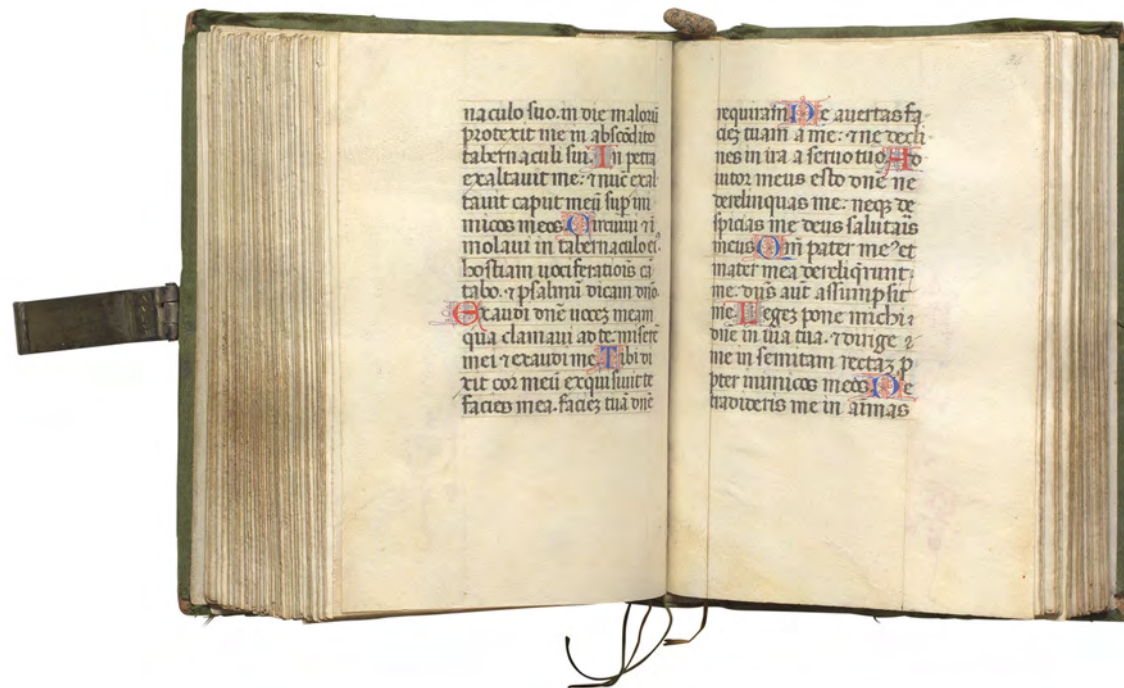 naculo suo. in die maloꝝ
protexit me in abscōdito
tabernaculi sui. In petra
exaltauit me: ⁊ nūc exal
tauit caput meū sup̄ ini
micos meos. Circuiui ⁊ ī
molaui in tabernaculo eiꝰ
hostiam uociferatiōis cā
tabo. ⁊ psalmū dicam dn̄o.
Exaudi dn̄e uocēʒ meam
qua clamaui ad te. miserē
mei ⁊ exaudi me. Tibi di
xit cor meū exquisiuit te
facies mea. facieʒ tuā dn̄e
36
requiram. Ne auertas fa
cieʒ tuam a me: ⁊ ne decli
nes in ira a seruo tuo. Ad
iutor meus esto dn̄e ne
derelinquas me: neqʒ de
spicias me deus salutaīs
meus. Qm̄ pater meꝰ et
mater mea dereliq̄runt
me: dn̄s aūt assumpsit
me. Legeʒ pone michi
dn̄e in uia tua. ⁊ dirige
me in semitam rectaʒ p̄
pter inimicos meos. Ne
tradideris me in aīmas